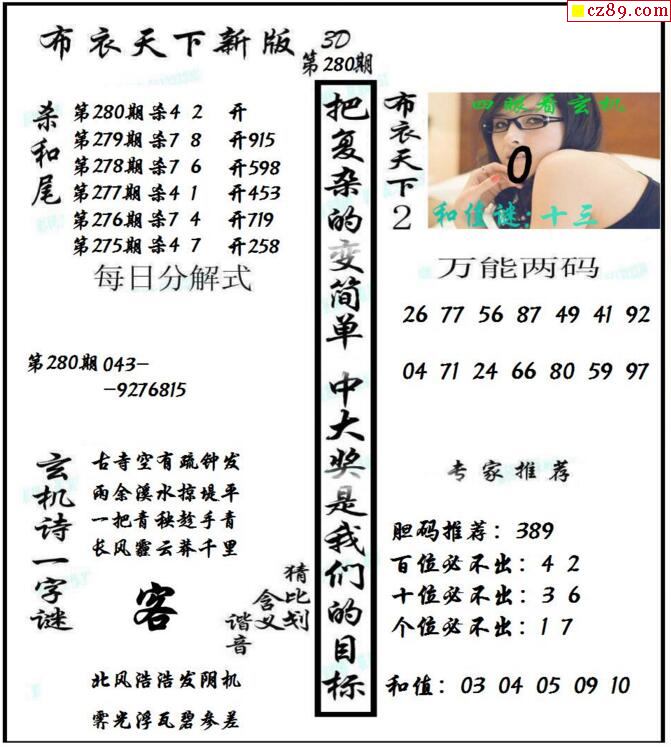 cz89.com
布衣天下新版
3D
第280期
杀和尾
第280期 杀4 2 开
第279期 杀7 8 开915
第278期 杀7 6 开598
第277期 杀4 1 开453
第276期 杀7 4 开719
第275期 杀4 7 开258
每日分解式
第280期 043-
-9276815
玄机诗一字谜
古寺空有疏钟发
雨余溪水掠堤平
一把青秧趁手青
长风霾云莽千里
客
猜比划
含义
谐音
北风浩浩发阴机
霁光浮瓦碧参差
把复杂的变简单 中大奖是我们的目标
布衣天下2
四眼看玄机
0
和值谜:十三
万能两码
26 77 56 87 49 41 92
04 71 24 66 80 59 97
专家推荐
胆码推荐:389
百位必不出:4 2
十位必不出:3 6
个位必不出:1 7
和值:03 04 05 09 10